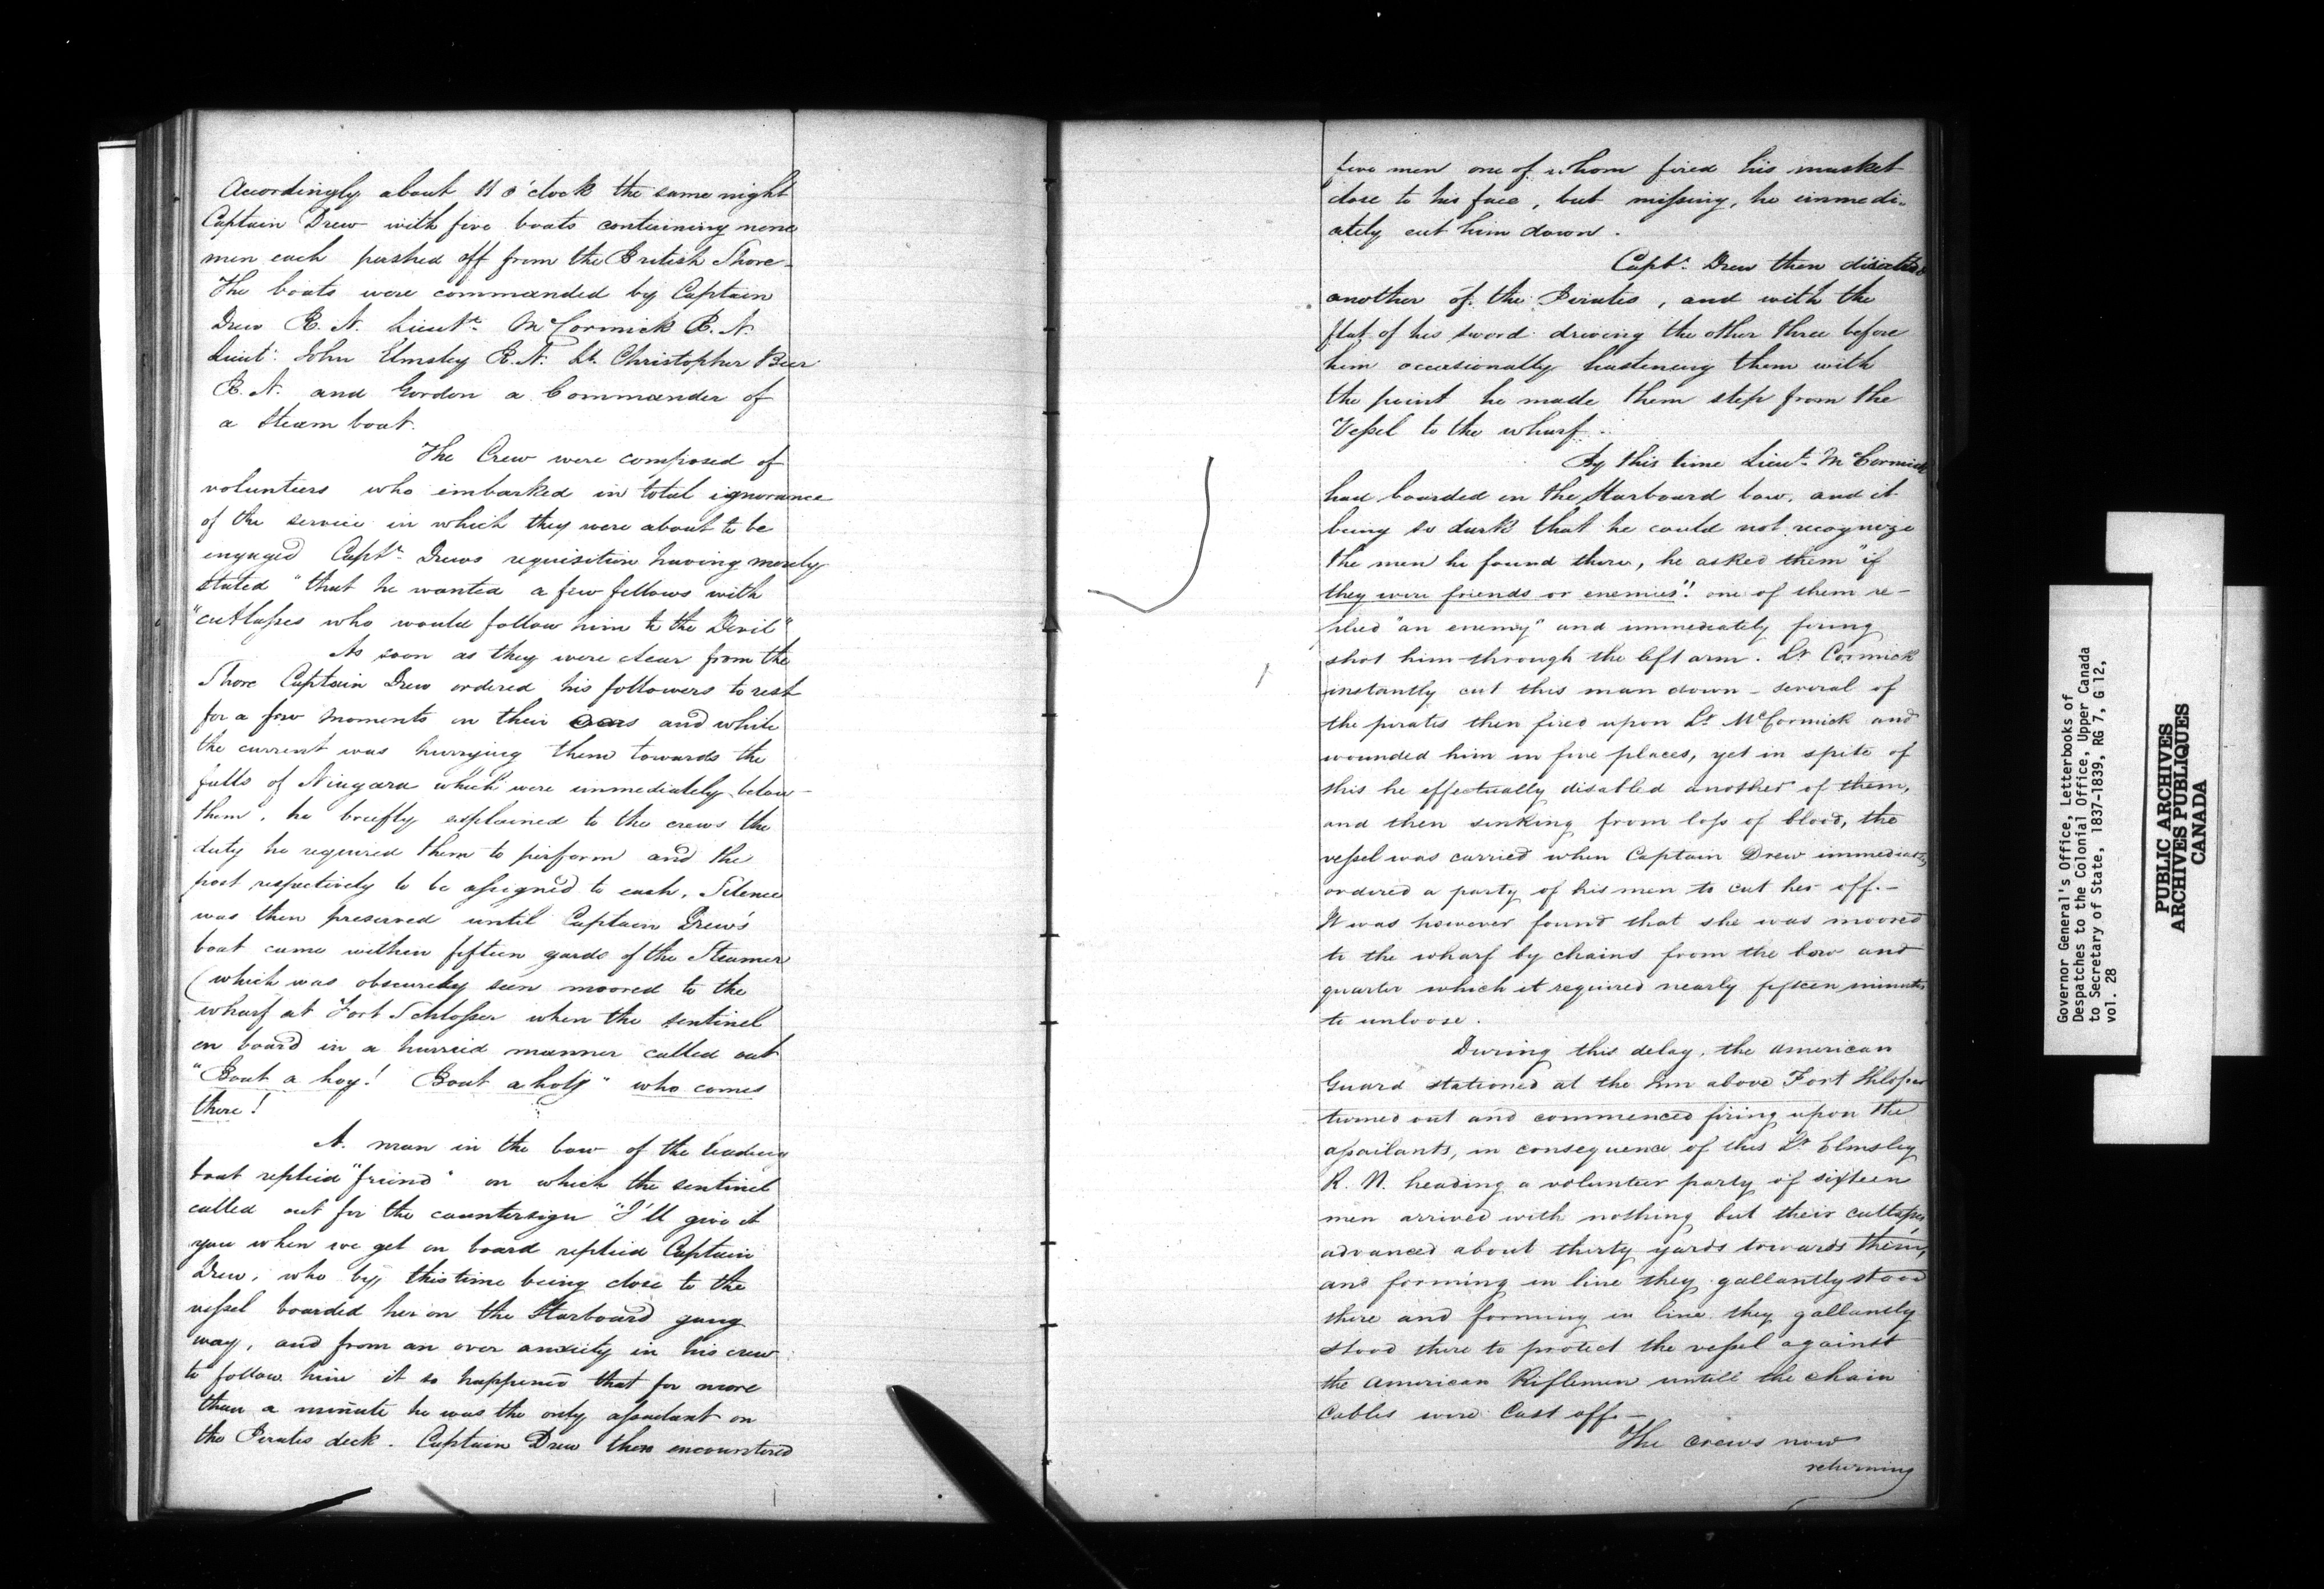 Accordingly about 11 o'clock the same night
Captain Drew with five boats containing nine
men each pushed off from the British Shore-
The boats were commanded by Captain
Drew R. N. Lieut. McCormick R. N.
Lieut: John Elmsley R. N. Lt. Christopher Beer
R. N. and Gordon a Commander of
a Steam boat.
The Crew were composed of
volunteers who embarked in total ignorance
of the service in which they were about to be
engaged Capt. Drews requisition having merely
stated "that he wanted a few fellows with
"cutlasses who would follow him to the Devil"
As soon as they were clear from the
Shore Captain Drew ordered his followers to rest
for a few moments on their oars and while
the current was hurrying them towards the
falls of Niagara which were immediately below
them, he briefly explained to the crews the
duty he required them to perform and the
post respectively to be assigned to each. Silence
was then preserved until Captain Drew's
boat came within fifteen yards of the Steamer
(which was obscurely seen moored to the
wharf at Fort Schlosser when the sentinel
on board in a hurried manner called out
"Boat a hoy! Boat a hoy" who comes
there!
A. man in the bow of the leading
boat replied "friend" on which the sentinel
called out for the countersign "I'll give it
you when we get on board replied Captain
Drew, who by this time being close to the
vessel boarded her on the Starboard gang
way, and from an over anxiety in his crew
to follow him it so happened that for more
than a minute he was the only assailant on
the Pirates deck. Captain Drew then encountered
five men one of whom fired his musket
close to his face, but missing, he immedi-
ately cut him down.
Capt. Drew then disabled
another of the Pirates, and with the
flat of his sword driving the other three before
him occasionally hastening them with
the point he made them step from the
Vessel to the wharf.
By this time Lieut. McCormick
had boarded on the Starboard bow, and it
being so dark that he could not recognize
the men he found there, he asked them "if
they were friends or enemies". one of them re-
plied "an enemy" and immediately firing
shot him through the left arm. Lt. Cormick
instantly cut this man down - several of
the pirates then fired upon Lt. McCormick and
wounded him in five places, yet in spite of
this he effectually disabled another of them,
and then sinking from loss of blood, the
vessel was carried when Captain Drew immediately
ordered a party of his men to cut her off.-
It was however found that she was moored
to the wharf by chains from the bow and
quarter which it required nearly fifteen minutes
to unloose.
During this delay, the American
Guard stationed at the Inn above Fort Shlosser
turned out and commenced firing upon the
assailants, in consequence of this Lt. Elmsley
R. N. heading a volunteer party of sixteen
men arrived with nothing but their cutlasses,
advanced about thirty yards towards them,
and forming in line they gallantly stood
there and forming in line they gallantly
stood there to protect the vessel against
the American Riflemen untill the chain
Cables were Cast off.-
The crews now
returning
Governor General's Office, Letterbooks of
Despatches to the Colonial Office, Upper Canada
to Secretary of State, 1837-1839, RG 7, G 12,
vol. 28
PUBLIC ARCHIVES
ARCHIVES PUBLIQUES
CANADA